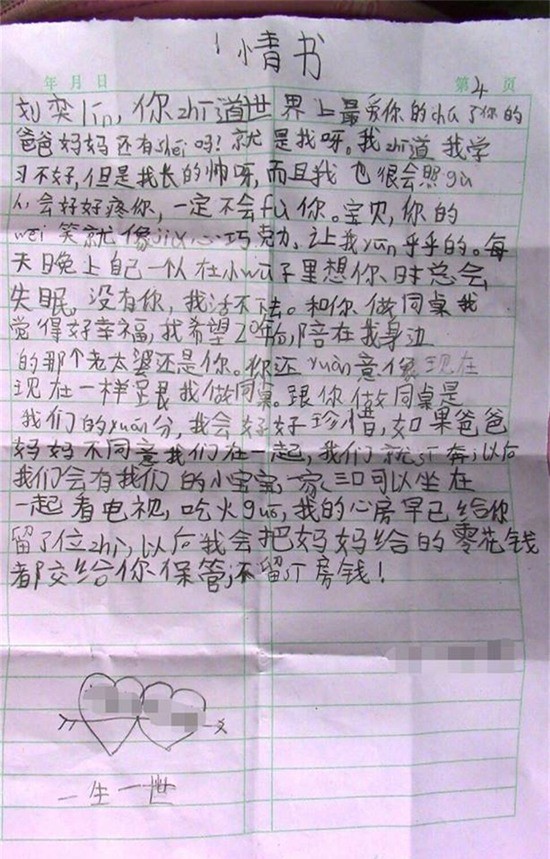 情书
年 月 日 第 4 页
刘奕lin，你zhī道世界上最爱你的chú了你的
爸爸妈妈还有shei吗？就是我呀。我zhī道我学
习不好，但是我长的帅呀，而且我也很会照gù
人，会好好疼你，一定不会fù你。宝贝，你的
wēi笑就像jiā心巧克力，让我yūn乎乎的。每
天日晚上自己一个人在小wū子里想你时总会
失眠，没有你，我活不下去。和你做同桌我
觉得好幸福，我希望20年后，陪在我身边
的那个老太婆还是你。你还yuàn意像现在
现在一样跟我做同桌。跟你做同桌是
我们的yuán分，我会好好珍惜，如果爸爸
妈妈不同意我们在一起，我们就sī奔，以后
我们会有我们的小宝宝，一家三口可以坐在
一起看电视，吃火guō，我的心房早已给你
留了位zhì，以后我会把妈妈给的零花钱
都交给你保管，不留丁房钱！
一生一世